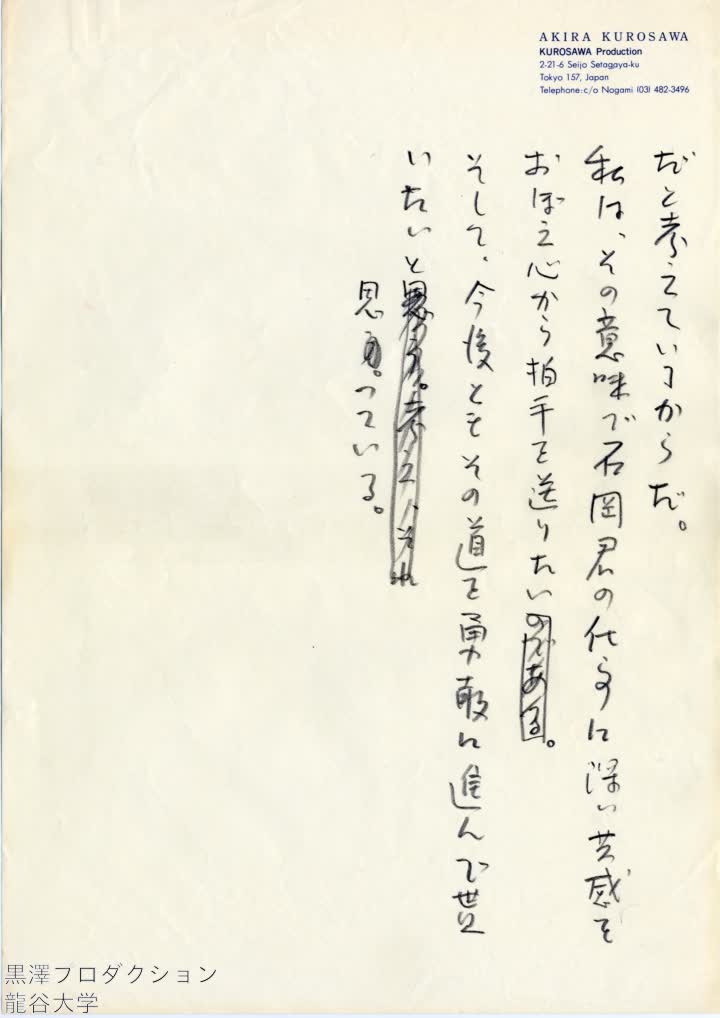 AKIRA KUROSAWA
KUROSAWA Production
2-21-6 Seijo Setagaya-ku
Tokyo 157, Japan
Telephone: c/o Nogami (03) 482-3496
だと考えているからだ。
私は、その意味で石岡君の仕事に深い共感を
おぼえ心から拍手を送りたいのである。
そして、今後ともその道を勇敢に進んで貰
いたいと思う。考え、それ
思う。っている。
黒澤プロダクション
龍谷大学